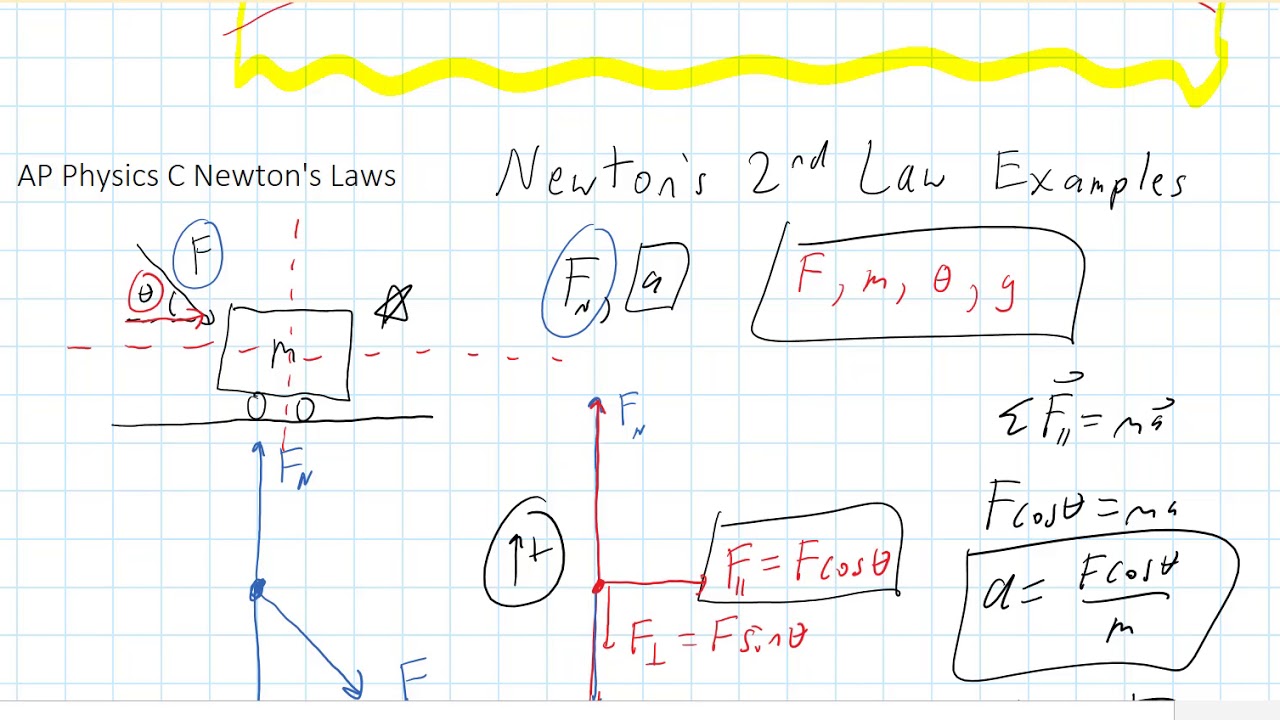 AP Physics C Newton's Laws
Newton's 2nd Law Examples
F
θ
m
F_N, a
F, m, θ, g
F_N
F_N
ΣF⃗_∥ = ma⃗
Fcosθ = ma
↑+
F_∥ = Fcosθ
a = Fcosθ/m
F_⊥ = Fsinθ
F